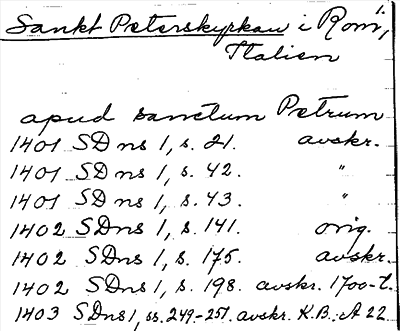 1.
Sankt Peterskyrkan i Rom,
Italien
apud sanctum Petrum
1401 SD ns 1, s. 21. avskr.
1401 SD ns 1, s. 42. "
1401 SD ns 1, s. 43. "
1402 SD ns 1, s. 141. orig.
1402 SD ns 1, s. 175. avskr.
1402 SD ns 1, s. 198. avskr. 1700-t.
1403 SD ns 1, ss. 249-251. avskr. K.B.: A 22